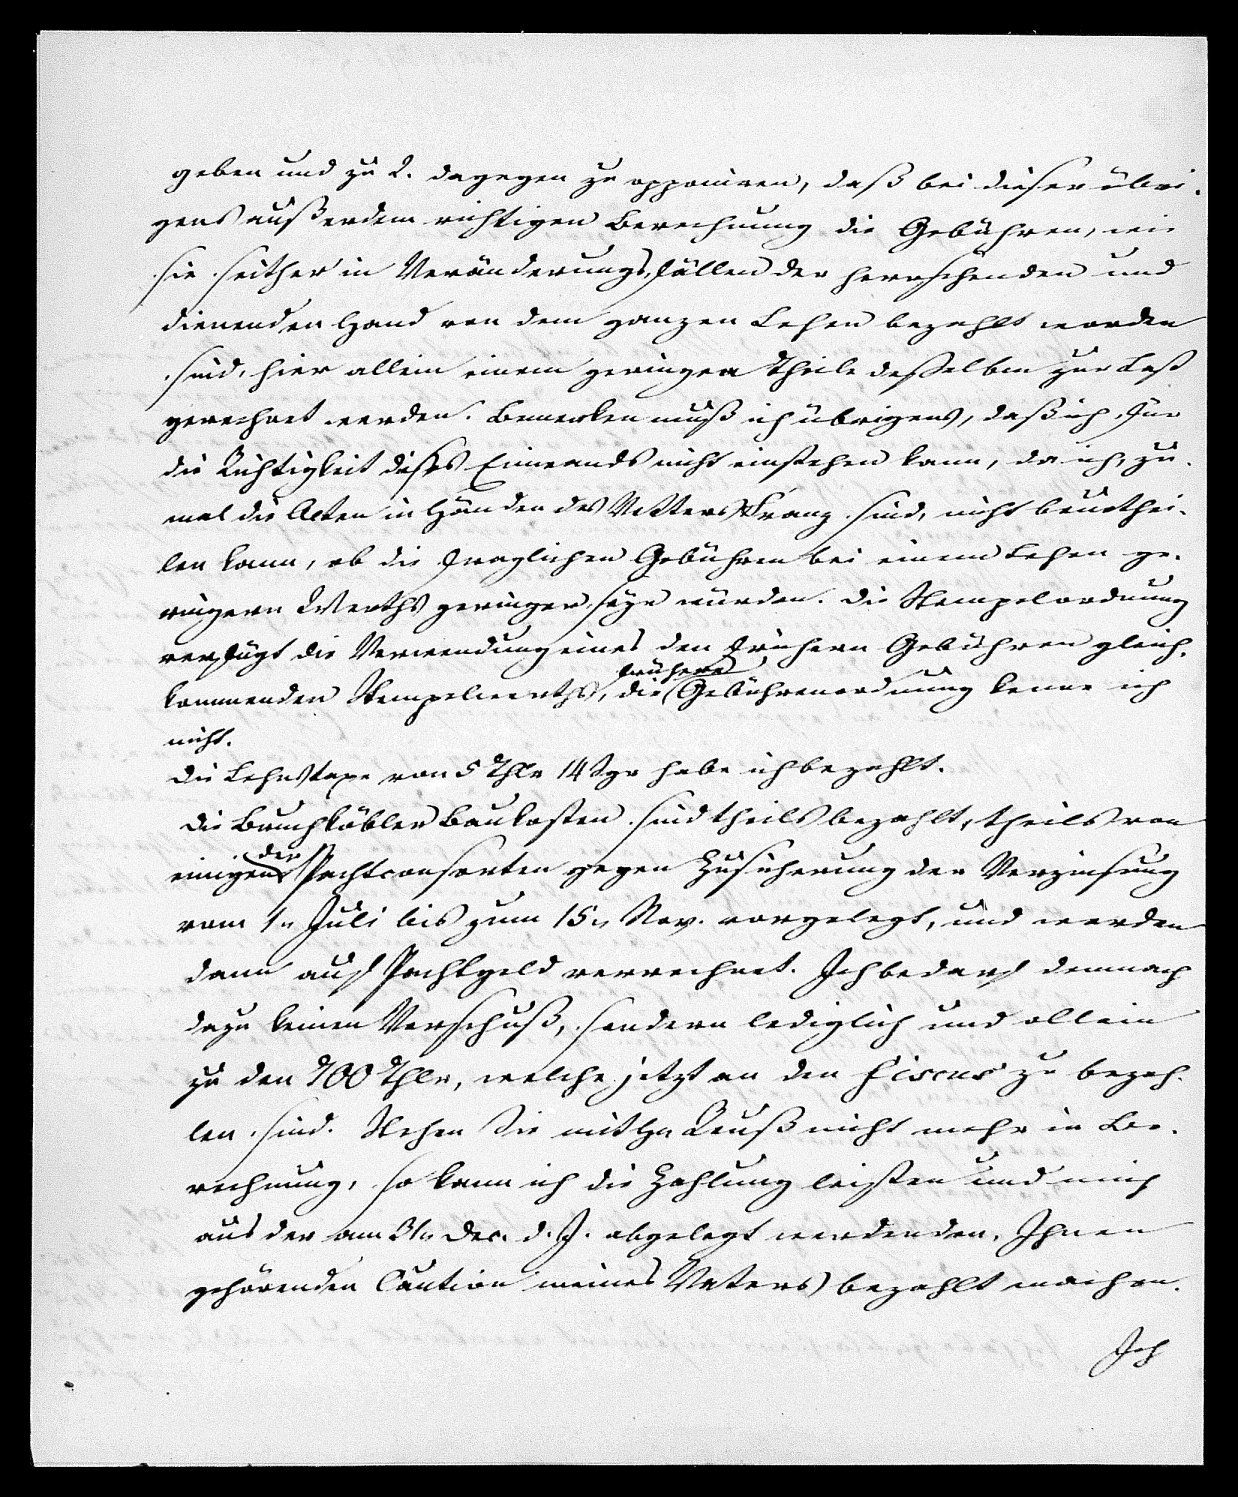 geben und zu 2. dagegen zu opponiren, daß bei dieser übri-
gens außerdem richtigen Berechnung die Gebühren, wie
sie seither in Veränderungsfällen der herrschenden und
dienenden Hand von dem ganzen Lehen bezahlt worden
sind, hier allein einem geringen Theile desselben zur Last
gerechnet werden. Bemerken muß ich übrigens, daß ich für
die Richtigkeit dieses Einwands nicht einstehen kann, da ich, zu-
mal die Acten in Händen des Vetters Franz sind, nicht beurthei-
len kann, ob die fraglichen Gebühren bei einem Lehen ge-
ringern Werths geringer seyn würden. Die Stempelordnung
verfügt die Verwendung eines den frühern Gebühren gleich-
kommenden Stempelwerths, die frühere Gebührenordnung kenne ich
nicht.
Die Lehnstaxe von 5 Thlr 14 Sgr habe ich bezahlt.
Die Bruchköbler Baukosten sind theils bezahlt, theils von
einigen der Pachtconsorten gegen Zusicherung der Verzinsung
vom 1n Juli bis zum 15n Nov. vorgelegt, und werden
dann auf Pachtgeld verrechnet. Ich bedarf demnach
dazu keinen Vorschuß, sondern lediglich und allein
zu den 700 Thlr, welche jetzt an den Fiscus zu bezah-
len sind. Stehen Sie mit Hn Reuß nicht mehr in Be-
rechnung, so kann ich die Zahlung leisten und mich
aus der am 31n Dec. d. J. abgelegt werdenden, Ihnen
gehörenden Caution meines Vaters bezahlt machen.
Ich